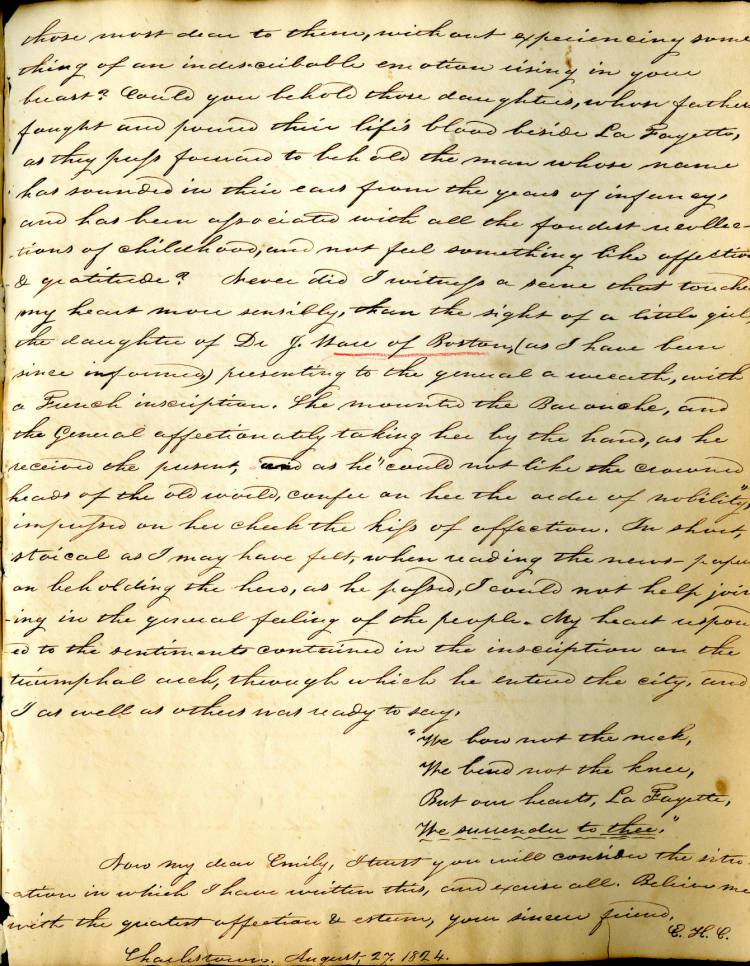 those most dear to them, without experiencing some
thing of an indescribable emotion rising in your
breast? Could you behold those daughters, whose fathers
fought and poured their life's blood beside La Fayette,
as they pass forward to behold the man whose name
has sounded in their ears from the years of infancy,
and has been associated with all the fondest recollec-
-tions of childhood, and not feel something like affection
& gratitude? Never did I witness a scene that touched
my heart more sensibly, than the sight of a little girl,
the daughter of Dr J. Ware of Boston, (as I have been
since informed,) presenting to the general a wreath, with
a French inscription. She mounted the Barouche, and
the General affectionately taking her by the hand, as he
received the present, and as he "could not like the crowned
heads of the old world, confer on her the order of nobility",
impressed on her cheek the kiss of affection. In short,
stoical as I may have felt, when reading the news-papers
on beholding the hero, as he passed, I could not help join
-ing in the general feeling of the people. My heart respond
-ed to the sentiments contained in the inscription on the
triumphal arch, through which he entered the city, and
I as well as others was ready to say,
"We bow not the neck,
We bend not the knee,
But our hearts, La Fayette,
We surrender to thee."
Now my dear Emily, I trust you will consider the situ-
-ation in which I have written this, and excuse all. Believe me
with the greatest affection & esteem, your sincere friend,
E. H. C.
Charlestown. August, 27. 1824.